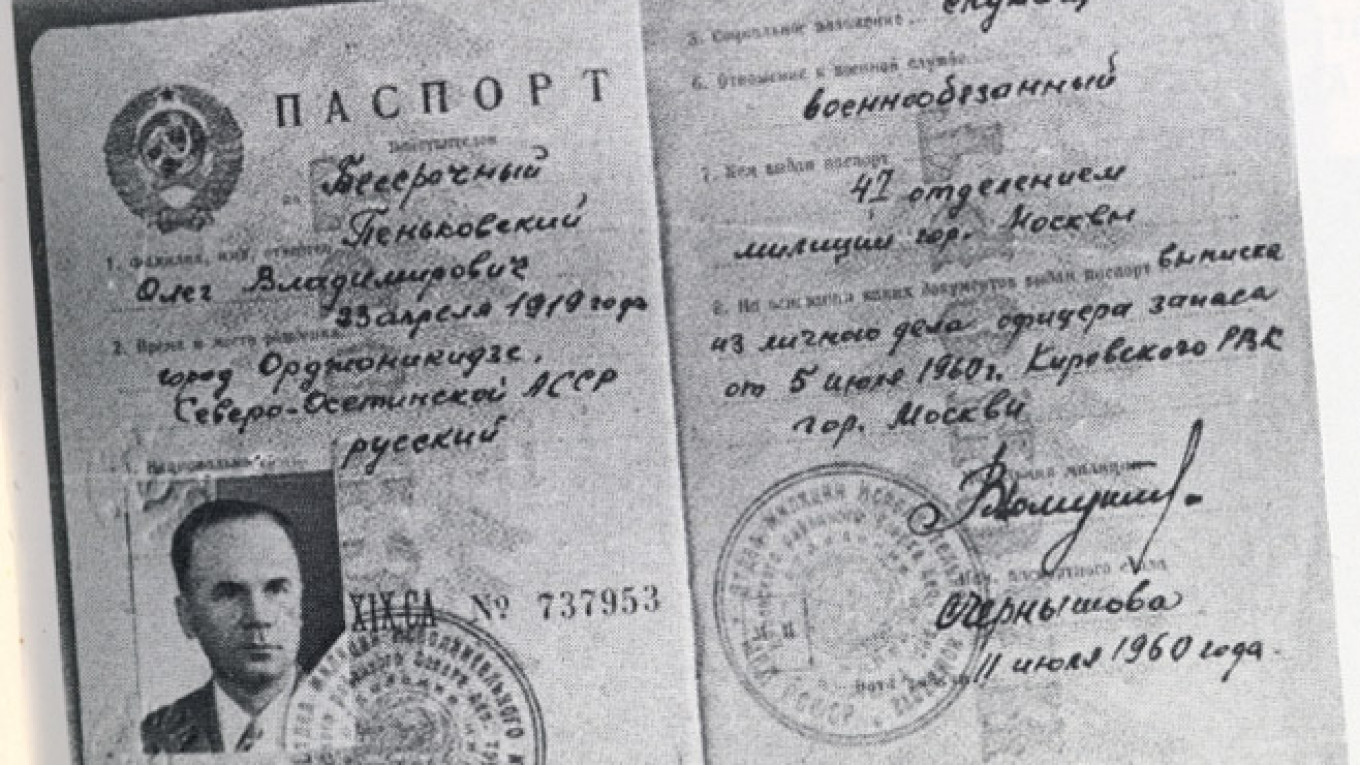 ПАСПОРТ
на Бессрочный
1. Фамилия, имя, отчество Пеньковский
Олег Владимирович
23 апреля 1919 года
2. Время и место рождения
город Орджоникидзе,
Северо-Осетинской АССР
русский
XIX-СА № 737953
5. Социальное положение
6. Отношение к военной службе
военнообязанный
7. Кем выдан паспорт
47 отделением
милиции гор. Москвы
8. На основании каких документов выдан паспорт выписка
из личного дела офицера запаса
от 5 июля 1960г. Кировского РВК
гор. Москвы
Чернышова
11 июля 1960 года.